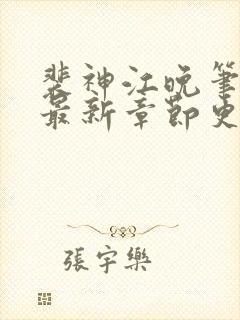 裴神江晚笔
最新章節史
張宇樂